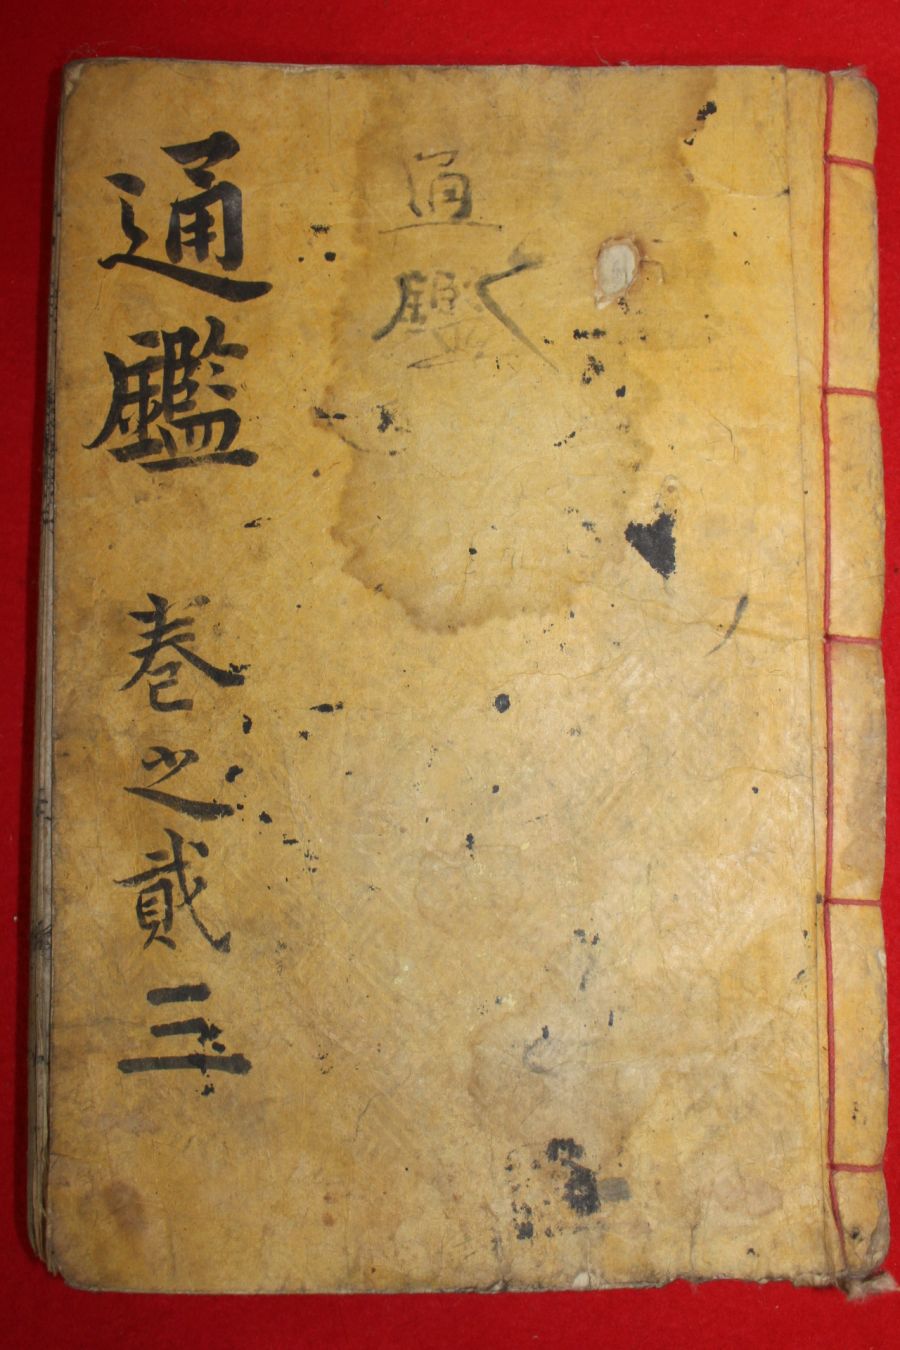 通鑑 巻之貳三
通鑑